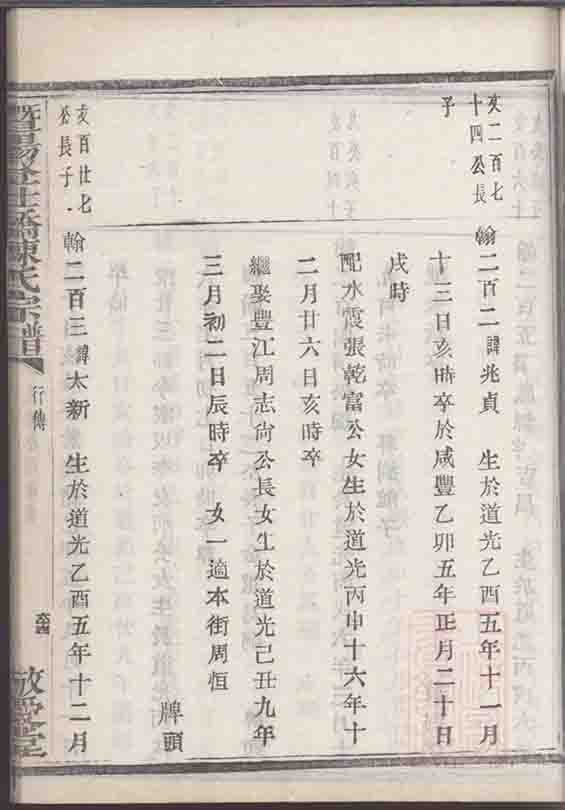 亥二百七
十四公長
子
翰二百二諱兆貞　生於道光乙酉五年十一月
十三日亥時卒於咸豐乙卯五年正月二十日
戌時
配水霞張乾富公女生於道光丙申十六年十
二月廿六日亥時卒
繼娶豐江周志尙公長女生於道光己丑九年
三月初二日辰時卒　女一適本街周恒
牌頭
亥百廿七
公長子
翰二百三諱太新　生於道光乙酉五年十二月
暨陽 陳氏宗譜
行傳